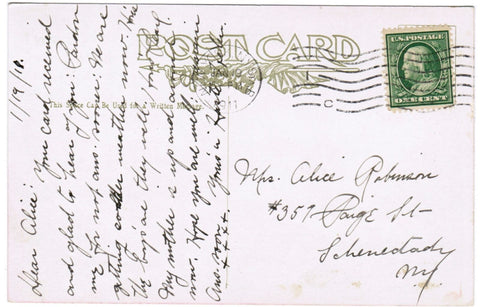 POST CARD
This Space Can Be Used for a Written Message.
U.S. POSTAGE
ONE CENT
C
1911
1/19/11.
Dear Alice: Your card received
and glad to hear of you. Pardon
me for not ans. sooner. We are
getting colder weather now. How
the boys are they well? Hope
My mother is up and around
now. Hope you are well
Ans. soon. Yours in Haste
x x x x
Mrs. Alice Robinson
#357 Paige St-
Schenectady
NY